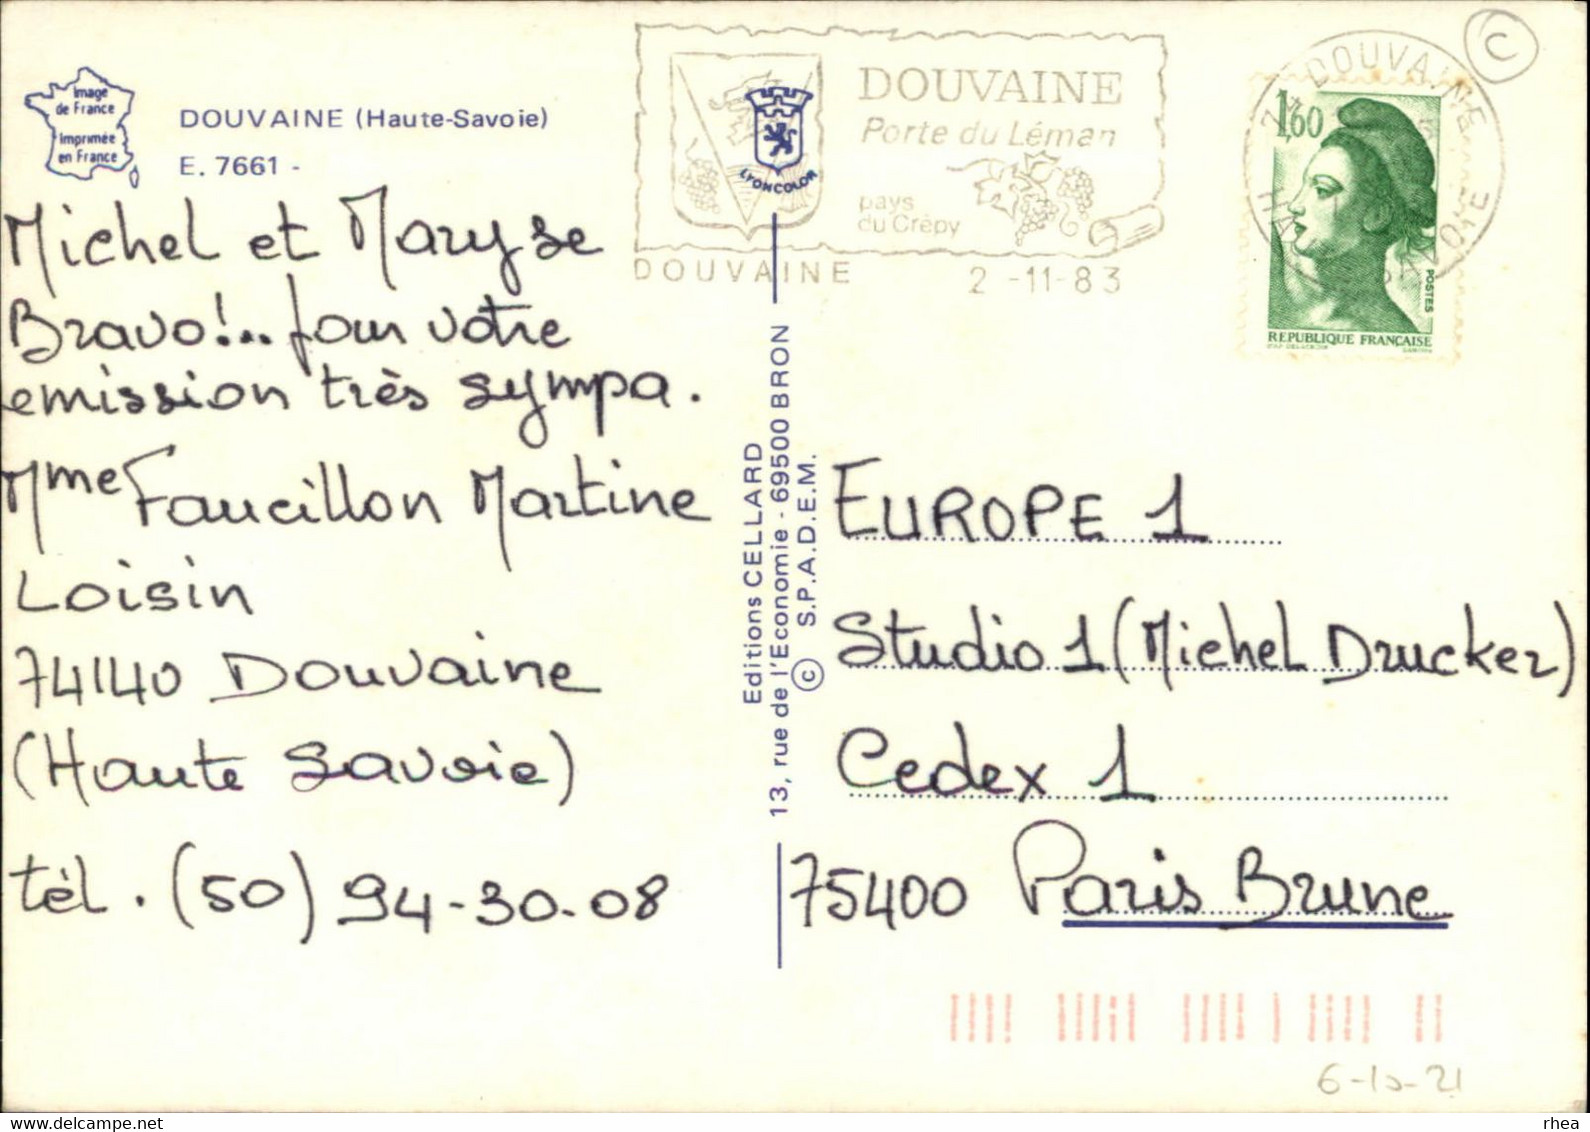 Image
de France
Imprimée
en France
DOUVAINE (Haute-Savoie)
E. 7661 -
Michel et Maryse
Bravo!.. pour votre
emission très sympa.
Mme Faucillon Martine
Loisin
74140 Douvaine
(Haute Savoie)
tél. (50) 94-30-08
LYONCOLOR
DOUVAINE
Porte du Léman
pays
du Crépy
DOUVAINE 2-11-83
Editions CELLARD
13, rue de l'Economie - 69500 BRON
© S.P.A.D.E.M.
C
74 DOUVAINE
HAUTE SAVOIE
1,60
POSTES
REPUBLIQUE FRANÇAISE
EUROPE 1
Studio 1 (Michel Drucker)
Cedex 1
75400 Paris Brune
6-10-21
www.delcampe.net
rhea